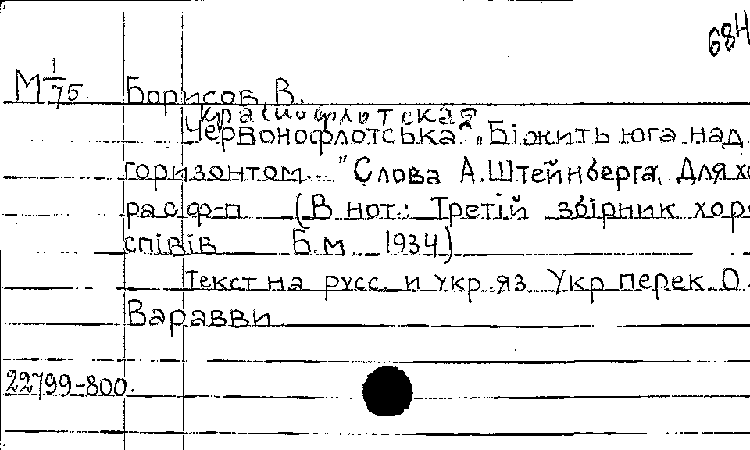 68Н
М 1/75 Борисов, В.
Краснофлотская
Червонофлотська. „Біжить юга над
горизонтом... " Слова А. Штейнберга. Для хо
ра с ф-п (В нот.: Третій збірник хоро
співів Б.м. 1934)
Текст на русс. и укр. яз. Укр. перек. О.
Варавви
22799-800.